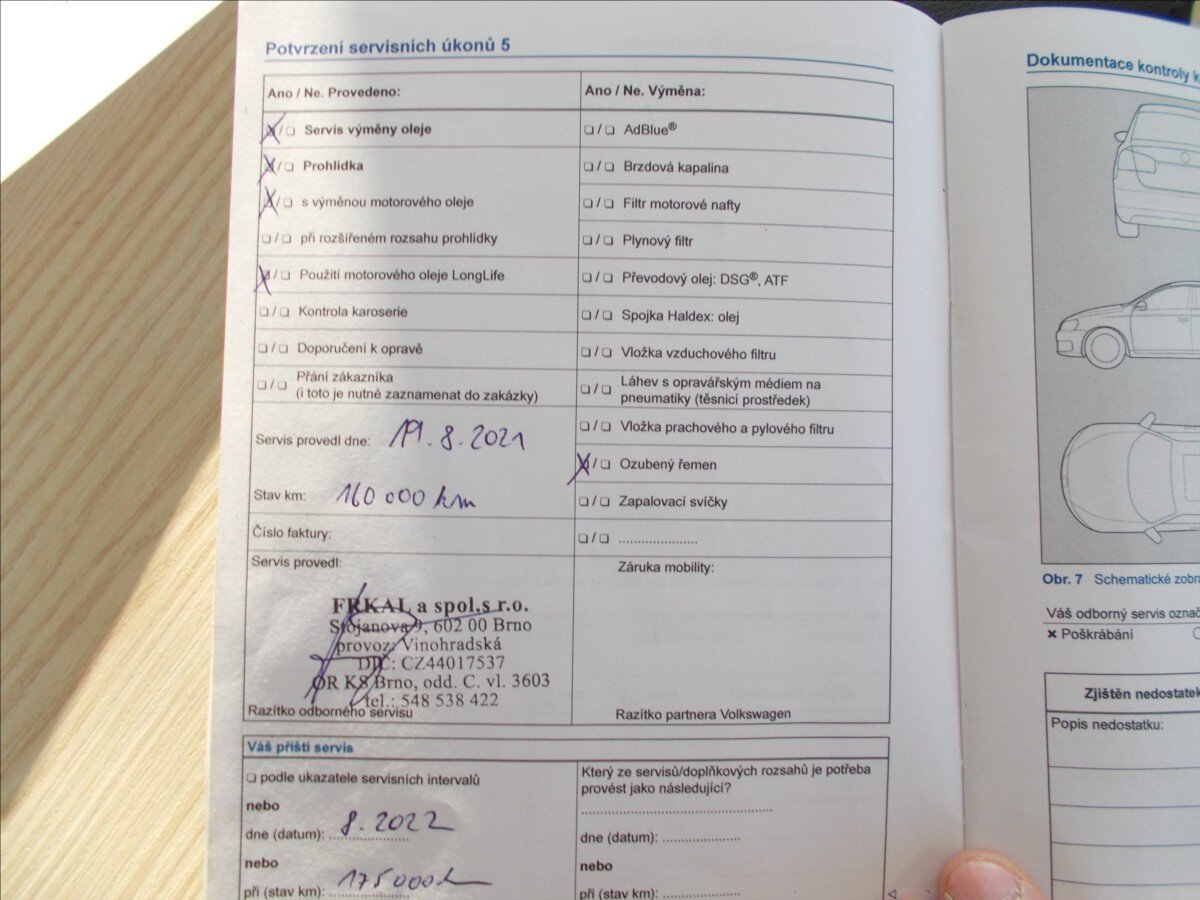 Potvrzení servisních úkonů 5
Ano / Ne. Provedeno:
☒/❏ Servis výměny oleje
☒/❏ Prohlídka
☒/❏ s výměnou motorového oleje
❏/❏ při rozšířeném rozsahu prohlídky
☒/❏ Použití motorového oleje LongLife
❏/❏ Kontrola karoserie
❏/❏ Doporučení k opravě
❏/❏ Přání zákazníka
(i toto je nutné zaznamenat do zakázky)
Servis provedl dne: 19.8.2021
Stav km: 160 000 km
Číslo faktury:
Servis provedl:
FRKAL a spol.s r.o.
Stojanova 9, 602 00 Brno
provoz: Vinohradská
DIČ: CZ44017537
OR KS Brno, odd. C. vl. 3603
tel.: 548 538 422
Razítko odborného servisu
Ano / Ne. Výměna:
❏/❏ AdBlue®
❏/❏ Brzdová kapalina
❏/❏ Filtr motorové nafty
❏/❏ Plynový filtr
❏/❏ Převodový olej: DSG®, ATF
❏/❏ Spojka Haldex: olej
❏/❏ Vložka vzduchového filtru
❏/❏ Láhev s opravářským médiem na
pneumatiky (těsnicí prostředek)
❏/❏ Vložka prachového a pylového filtru
☒/❏ Ozubený řemen
❏/❏ Zapalovací svíčky
❏/❏ ......................
Záruka mobility:
Razítko partnera Volkswagen
Váš příští servis
❏ podle ukazatele servisních intervalů
nebo
dne (datum): 8.2022
nebo
při (stav km): 175000k
Který ze servisů/doplňkových rozsahů je potřeba
provést jako následující?
dne (datum): ......................
nebo
při (stav km): ......................
Dokumentace kontroly
Obr. 7 Schematické
Váš odborný servis
× Poškrábání
Zjištěn
Popis nedostatku: